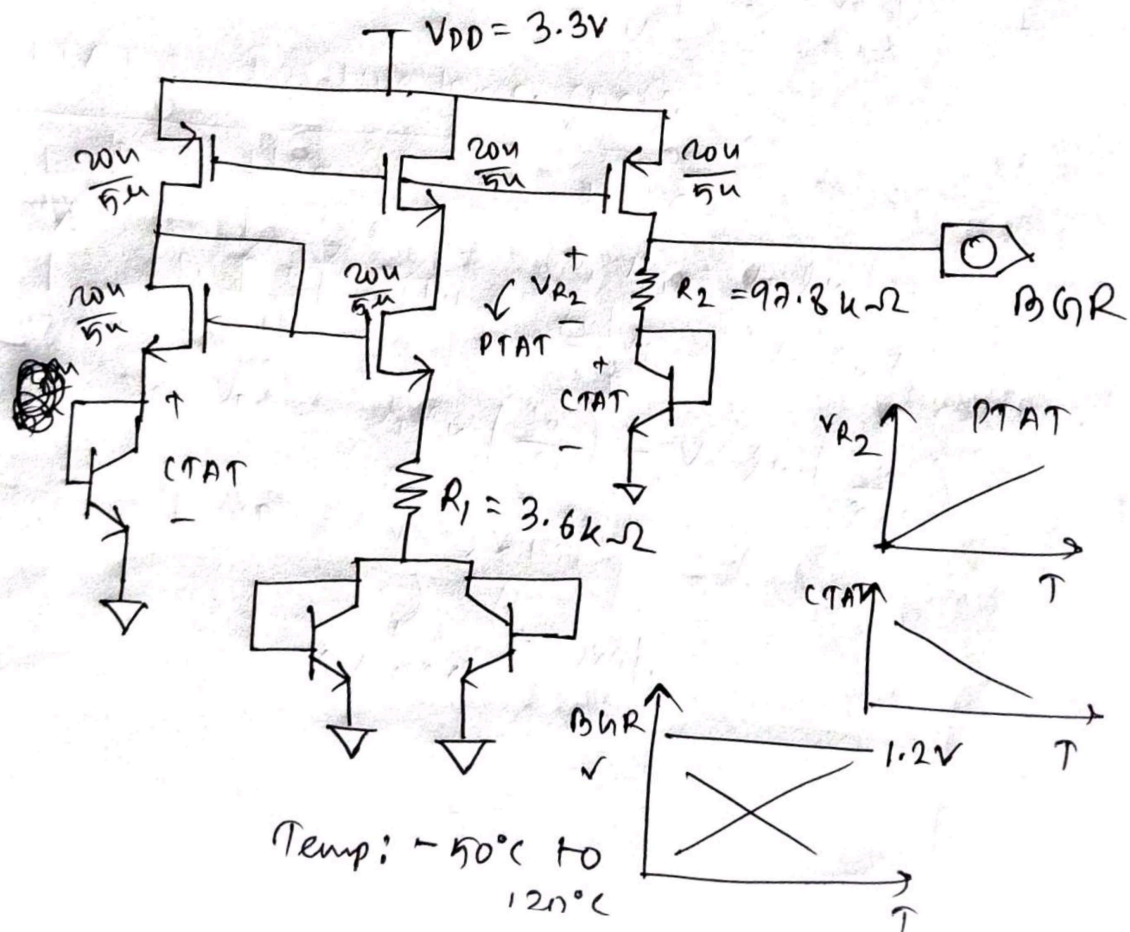 VDD = 3.3V
20u/5u
20u/5u
20u/5u
20u/5u
20u/5u
+
VR2
-
PTAT
R2 = 97.8kΩ
BGR
+
CTAT
-
+
CTAT
-
R1 = 3.6kΩ
VR2
PTAT
T
CTAT
T
BGR
1.2V
T
Temp: -50°C to
120°C